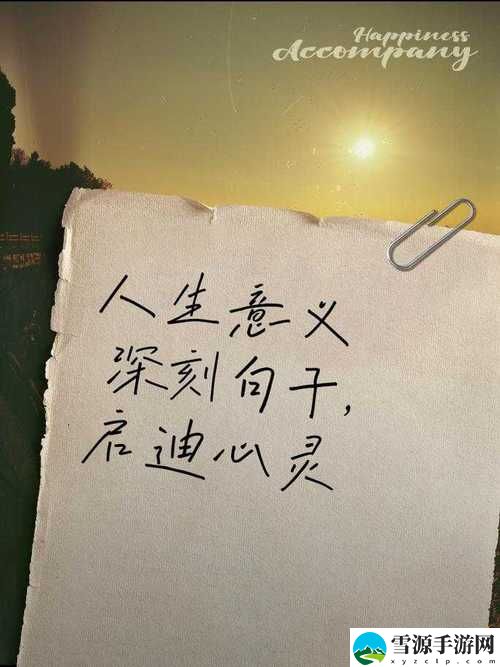 Happiness
Accompany
人生意义
深刻句子,
启迪心灵
雪源手游网
www.xyzclp.com